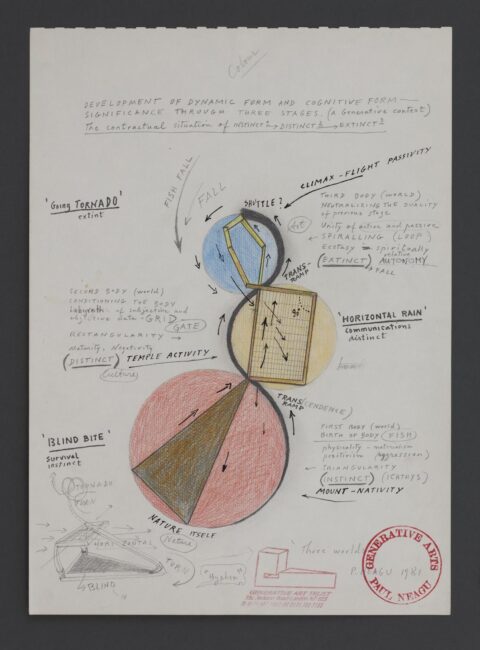 Colour
DEVELOPMENT OF DYNAMIC FORM AND COGNITIVE FORM —
SIGNIFICANCE THROUGH THREE STAGES. (a Generative context)
The contractual situation of INSTINCT¹ → DISTINCT² → EXTINCT³
FISH FALL
FALL
'Going TORNADO'
extint
SHUTTLE?
CLIMAX-FLIGHT PASSIVITY
THIRD BODY (WORLD)
NEUTRALIZING THE DUALITY
of previous stage
Unity of active and passive
← SPIRALLING (LOOP)
Ecstasy = spiritually
relative
(EXTINCT) AUTONOMY
FALL
TRANS-
RAMP
SECOND BODY (world)
CONDITIONING THE BODY
Labyrinth of subjective and
objective data - GRID
(GATE)
RECTANGULARITY →
Maturity, Negativity
(DISTINCT) TEMPLE ACTIVITY
(Culture)
'HORIZONTAL RAIN'
communications
distinct
TRANS(CENDENCE)
RAMP
FIRST BODY (world)
BIRTH OF BODY (FISH)
physicality - materialism
positivism (aggression)
← TRIANGULARITY
(INSTINCT) (ICHTHYS)
MOUNT-NATIVITY
'BLIND BITE'
Survival
instinct
TORNADO
TURN
HORIZONTAL
BLIND
TURN
NATURE ITSELF
(Nature)
"Hyphen"
GENERATIVE ART TRUST
Three worlds
P. NEAGU 1981
GENERATIVE ARTS
PAUL NEAGU